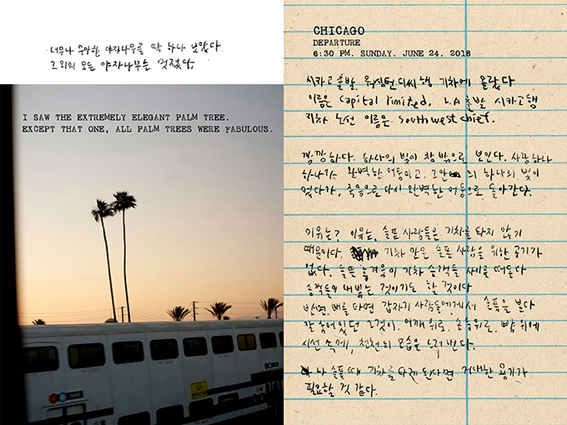 너무나 우아한 야자나무를 딱 하나 보았다
그 외의 모든 야자나무는 멋졌다.
I SAW THE EXTREMELY ELEGANT PALM TREE.
EXCEPT THAT ONE, ALL PALM TREES WERE FABULOUS.
CHICAGO
DEPARTURE
6:30 PM. SUNDAY. JUNE 24. 2018
시카고 출발 워싱턴 디씨 행 기차에 올랐다
이름은 Capital limited, L.A 출발 시카고행
기차 노선 이름은 southwest chief.
깜깜하다. 하나의 빛이 창 밖으로 보인다.
완벽한 어둠이고. 하나의 빛이
다시 완벽한 어둠으로 돌아간다.
이유는? 이유는, 슬픈 사람들은 기차를 타지 않기
때문이다. 기차 안은 슬픈 사람을 위한 공기가
없다. 기차 승객들 사이를 떠돈다
승객들이 내뱉는 것이기도 할 것이다
반면 배를 타면 갑자기 사람들에게서 슬픔을 본다
어깨 위로, 손등위로, 뺨 위에
시선 속에, 천천히 모습을 드러낸다.
나 슬플 때 기차를 타게 된다면 거대한 용기가
필요할 것 같다.